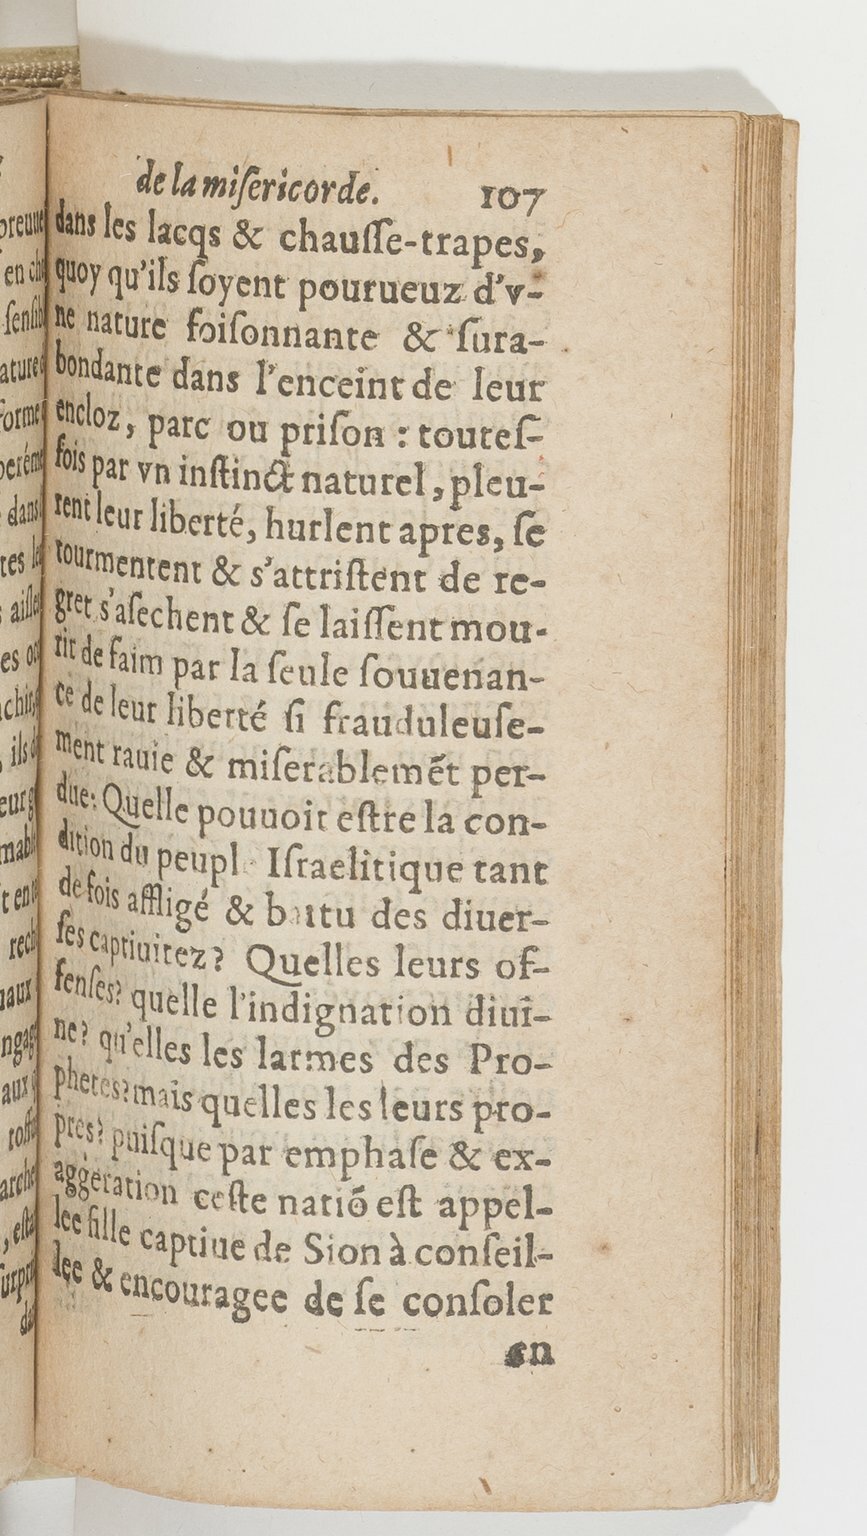 de la miſericorde. 107
dans les lacqs & chauſſe-trapes,
quoy qu'ils ſoyent pourueuz d'v-
ne nature foiſonnante & ſura-
bondante dans l'enceint de leur
encloz, parc ou priſon : touteſ-
fois par vn inſtinct naturel, pleu-
rent leur liberté, hurlent apres, ſe
tourmentent & s'attriſtent de re-
gret s'aſechent & ſe laiſſent mou-
rir de faim par la ſeule ſouuenan-
ce de leur liberté ſi frauduleuſe-
ment rauie & miſerablemẽt per-
due: Quelle pouuoit eſtre la con-
dition du peupl Iſraelitique tant
de fois affligé & batu des diuer-
ſes captiuitez? Quelles leurs of-
fenſes? quelle l'indignation diui-
ne? qu'elles les larmes des Pro-
phetes? mais quelles les leurs pro-
pres? puiſque par emphaſe & ex-
aggeration ceſte natiõ eſt appel-
lee fille captiue de Sion à conſeil-
lee & encouragee de ſe conſoler
en